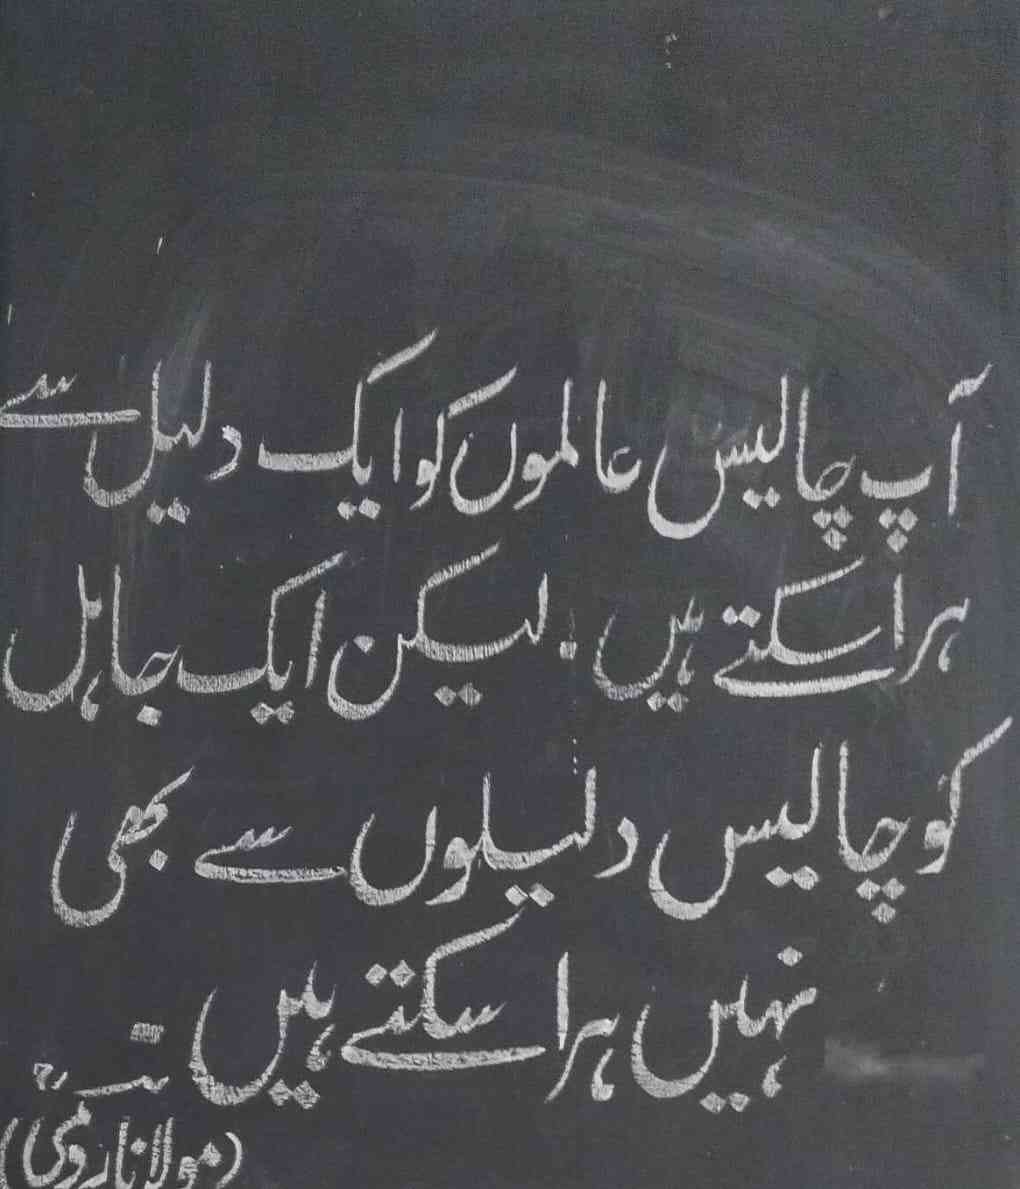 آپ چالیس عالموں کو ایک دلیل سے
ہرا سکتے ہیں . لیکن ایک جاہل
کو چالیس دلیلوں سے بھی
نہیں ہرا سکتے ہیں
(مولانا رومی)